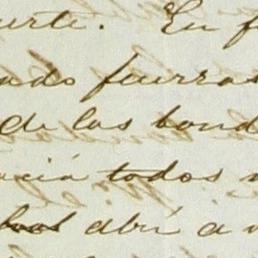 uerte. En f
ndo fuerzas
de las bond
ncia todos
abrí a